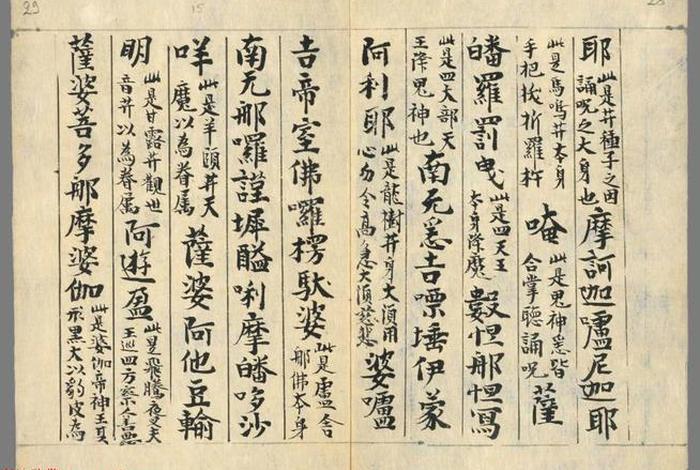 耶 此是井種子之因 誦呪之大身也 摩訶迦嚧尼迦耶
此是馬鳴井本身 手把拔折羅杵 唵 此是鬼神悉皆 合掌聽誦呪 薩
皤羅罰曳 此是四天王 本身降魔 數怛那怛寫
此是四大部天 王降鬼神也 南无悉吉㗚埵伊蒙
阿利耶 此是龍樹井身大須用 心勿令高急大須慈悲 婆嚧
吉帝室佛囉楞馱婆 此是盧舍 那佛本身
南无那囉謹墀醯唎摩皤哆沙
咩 此是羊頭井天 魔以為眷属 薩婆阿他豆輸
明 此是甘露井觀世 音井以為眷属 阿遊盈 此是飛騰夜叉天 王巡四方察
薩婆菩多那摩婆伽 此是婆伽帝神王其 形黑大以豹皮為
29
15